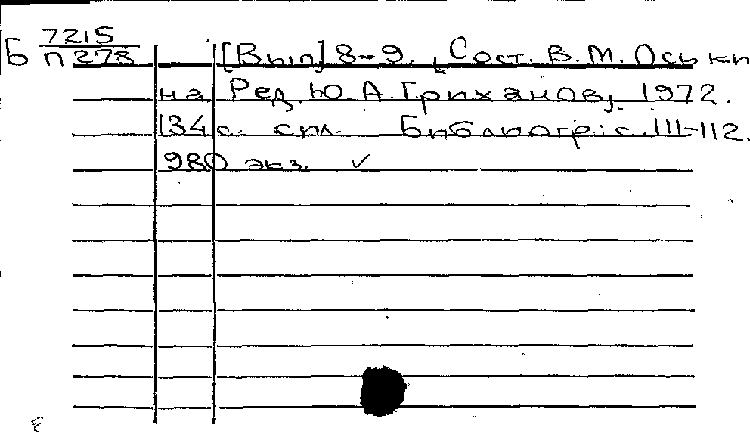 Б 7215
П 278
[Вып] 8-9. [Сост. В. М. Оськи
на. Ред. Ю. А. Гриханов], 1972.
134 с. спл. Библиогр: с. 111-112.
980 экз. ✓